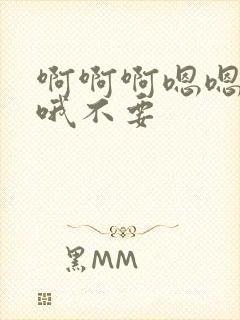 啊啊啊嗯嗯
哦不要
黑MM